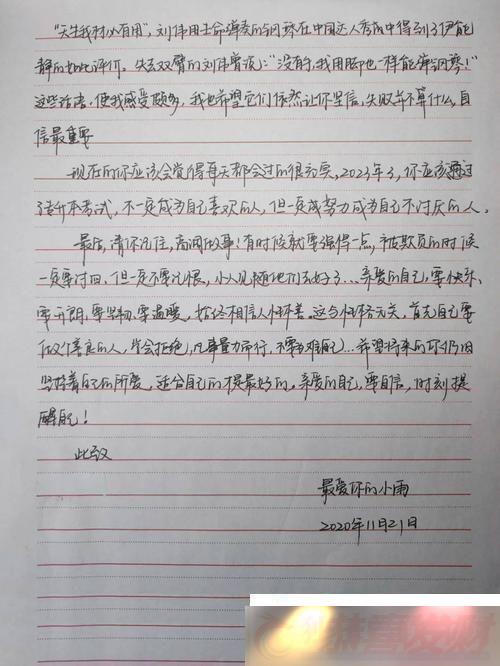 “天生我材必有用”，刘伟用生命弹奏的钢琴在中国达人秀中得到了伊能
静的如此评价。失去双臂的刘伟曾说：“没有手，我用脚也一样能弹钢琴！”
这些话语，使我感受颇多，我也希望它们依然让你坚信，失败并不算什么，自
信最重要
现在的你应该会觉得每天都会过的很充实，2023年了，你应该通过
专升本考试，不一定成为自己喜欢的人，但一定成努力成为自己不讨厌的人。
最后，请你记住，高调做事！有时候就要强得一点，被欺负的时候
一定要讨回，但一定不要记恨，小人见随他们去好了…亲爱的自己，要快乐、
要开朗、要坚韧、要温暖，始终相信人性本善。这与性格无关，首先自己要
做个善良的人，学会拒绝，凡事量力而行，不要为难自己…希望将来的你仍旧
坚持着自己的所爱，适合自己的才是最好的。亲爱的自己，要自信，时刻提
醒自己！
此致
最爱你的小雨
2020年11月21日